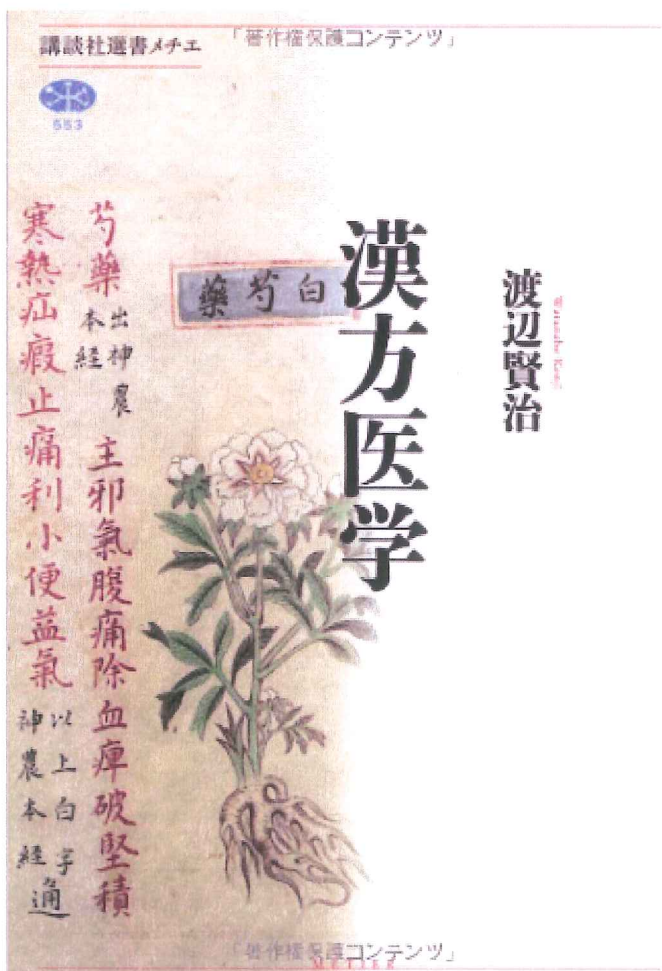 講談社選書メチエ
「著作権保護コンテンツ」
553
漢方医学
渡辺賢治
Watanabe Kenji
白芍藥
芍藥
出神農
本経
主邪氣腹痛除血痺破堅積
寒熱疝瘕止痛利小便益氣
以上白字
神農本経
通
「著作権保護コンテンツ」
MÉTIER